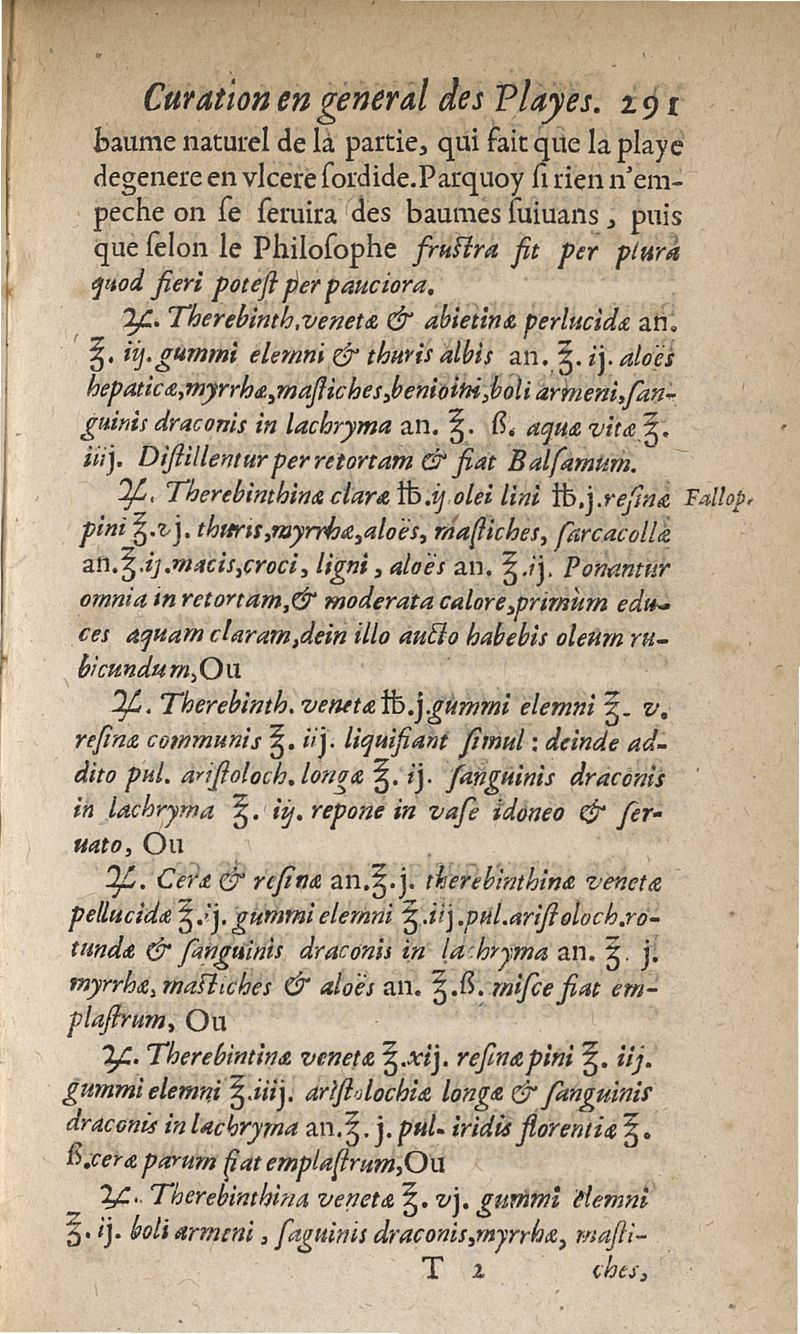 Curation en general des Playes. 291
baume naturel de la partie, qui fait que la playe
degenere en vlcere ſordide. Parquoy ſi rien n'em-
peche on ſe ſeruira des baumes ſuiuans, puis
que ſelon le Philoſophe fruſtra fit per plura
quod fieri poteſt per pauciora.
℞. Therebinth. venetæ & abietinæ perlucidæ an.
℥. iij. gummi elemni & thuris albis an. ℥. ij. aloës
hepaticæ, myrrhæ, maſtiches, benioini, boli armeni, ſan-
guinis draconis in lachryma an. ℥. ß. aquæ vitæ ℥.
iiij. Diſtillentur per retortam & fiat Balſamum.
℞. Therebinthinæ claræ ℔. ij olei lini ℔. j. reſinæ Fallop.
pini ℥. vj. thuris, myrrhæ, aloës, maſtiches, ſarcacollæ
an. ℥. ij. macis, croci, ligni, aloës an. ℥. ij. Ponantur
omnia in retortam, & moderata calore, primùm edu-
ces aquam claram, dein illo aucto habebis oleum ru-
bicundum, Ou
℞. Therebinth. venetæ ℔. j. gummi elemni ℥. v.
reſinæ communis ℥. iij. liquifiant ſimul : deinde ad-
dito pul. ariſtoloch. longæ ℥. ij. ſanguinis draconis
in lachryma ℥. iij. repone in vaſe idoneo & ſer-
uato, Ou
℞. Ceræ & reſinæ an. ℥. j. therebinthinæ venetæ
pellucidæ ℥. ij. gummi elemni ℥. iij. pul. ariſtoloch. ro-
tundæ & ſanguinis draconis in lachryma an. ℥. j.
myrrhæ, maſtiches & aloës an. ℥. ß. miſce fiat em-
plaſtrum, Ou
℞. Therebintinæ venetæ ℥. xij. reſinæ pini ℥. iij.
gummi elemni ℥. iiij. ariſtolochiæ longæ & ſanguinis
draconis in lachryma an. ℥. j. pul. iridis florentiæ ℥.
ß. ceræ parum fiat emplaſtrum, Ou
℞. Therebinthina venetæ ℥. vj. gummi elemni
℥. ij. boli armeni, ſaguinis draconis, myrrhæ, maſti-
T 2 ches,